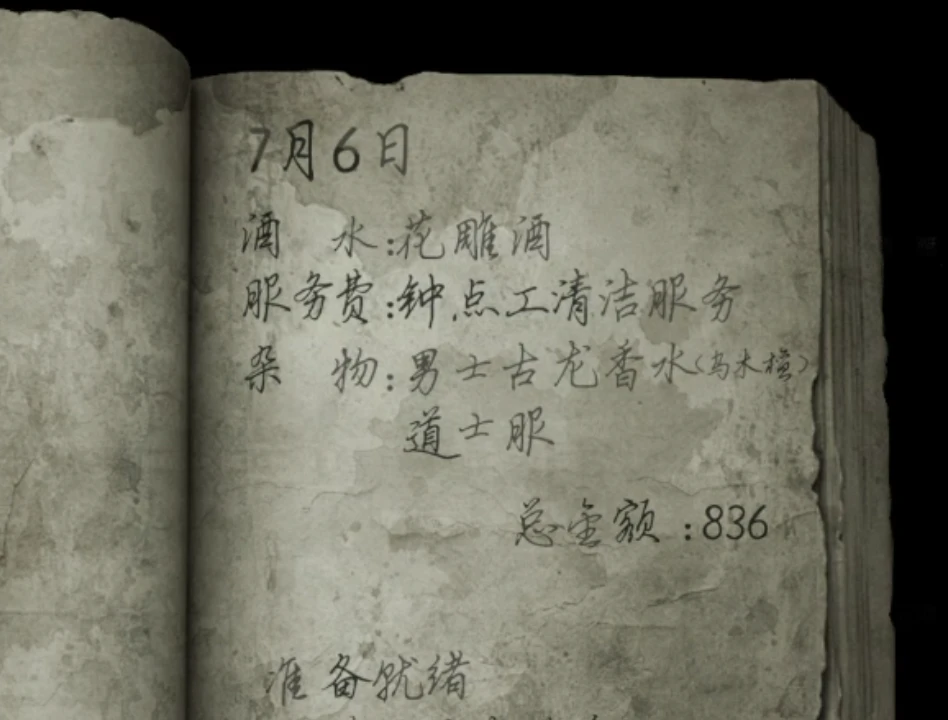 7月6日
酒 水:花雕酒
服务费:钟点工清洁服务
杂 物:男士古龙香水(乌木檀)
道士服
总金额:836
准备就绪